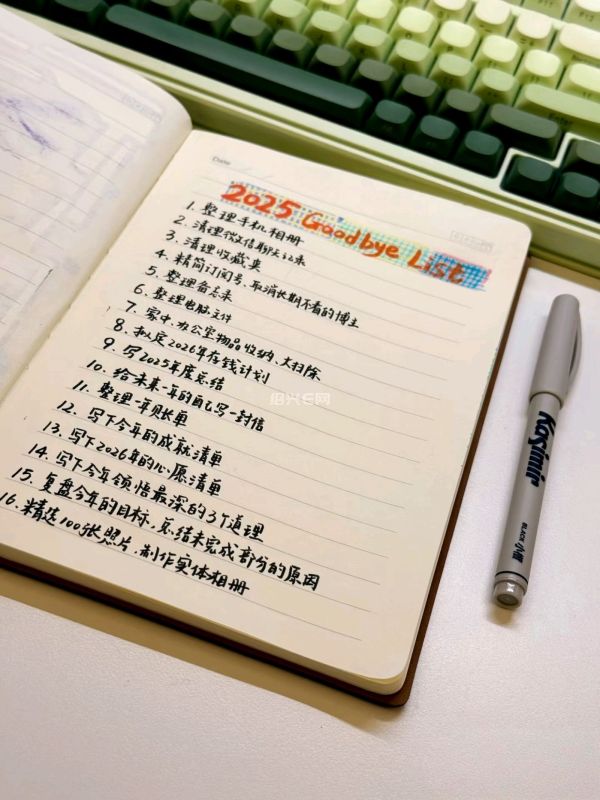 Date
2025 Goodbye List
1. 整理手机相册
2. 清理微信聊天记录
3. 清理收藏夹
4. 精简订阅号、取消长期不看的博主
5. 整理备忘录
6. 整理电脑文件
7. 家中、办公室物品收纳、大扫除
8. 拟定2026年存钱计划
9. 写2025年度总结
10. 给未来一年的自己写一封信
11. 整理一年账单
12. 写下今年的成就清单
13. 写下2026年的心愿清单
14. 写下今年领悟最深的3个道理
15. 复盘今年的目标、总结未完成部分的原因
16. 精选100张照片、制作实体相册
绍兴E网
Kasimir
BLACK/小楷